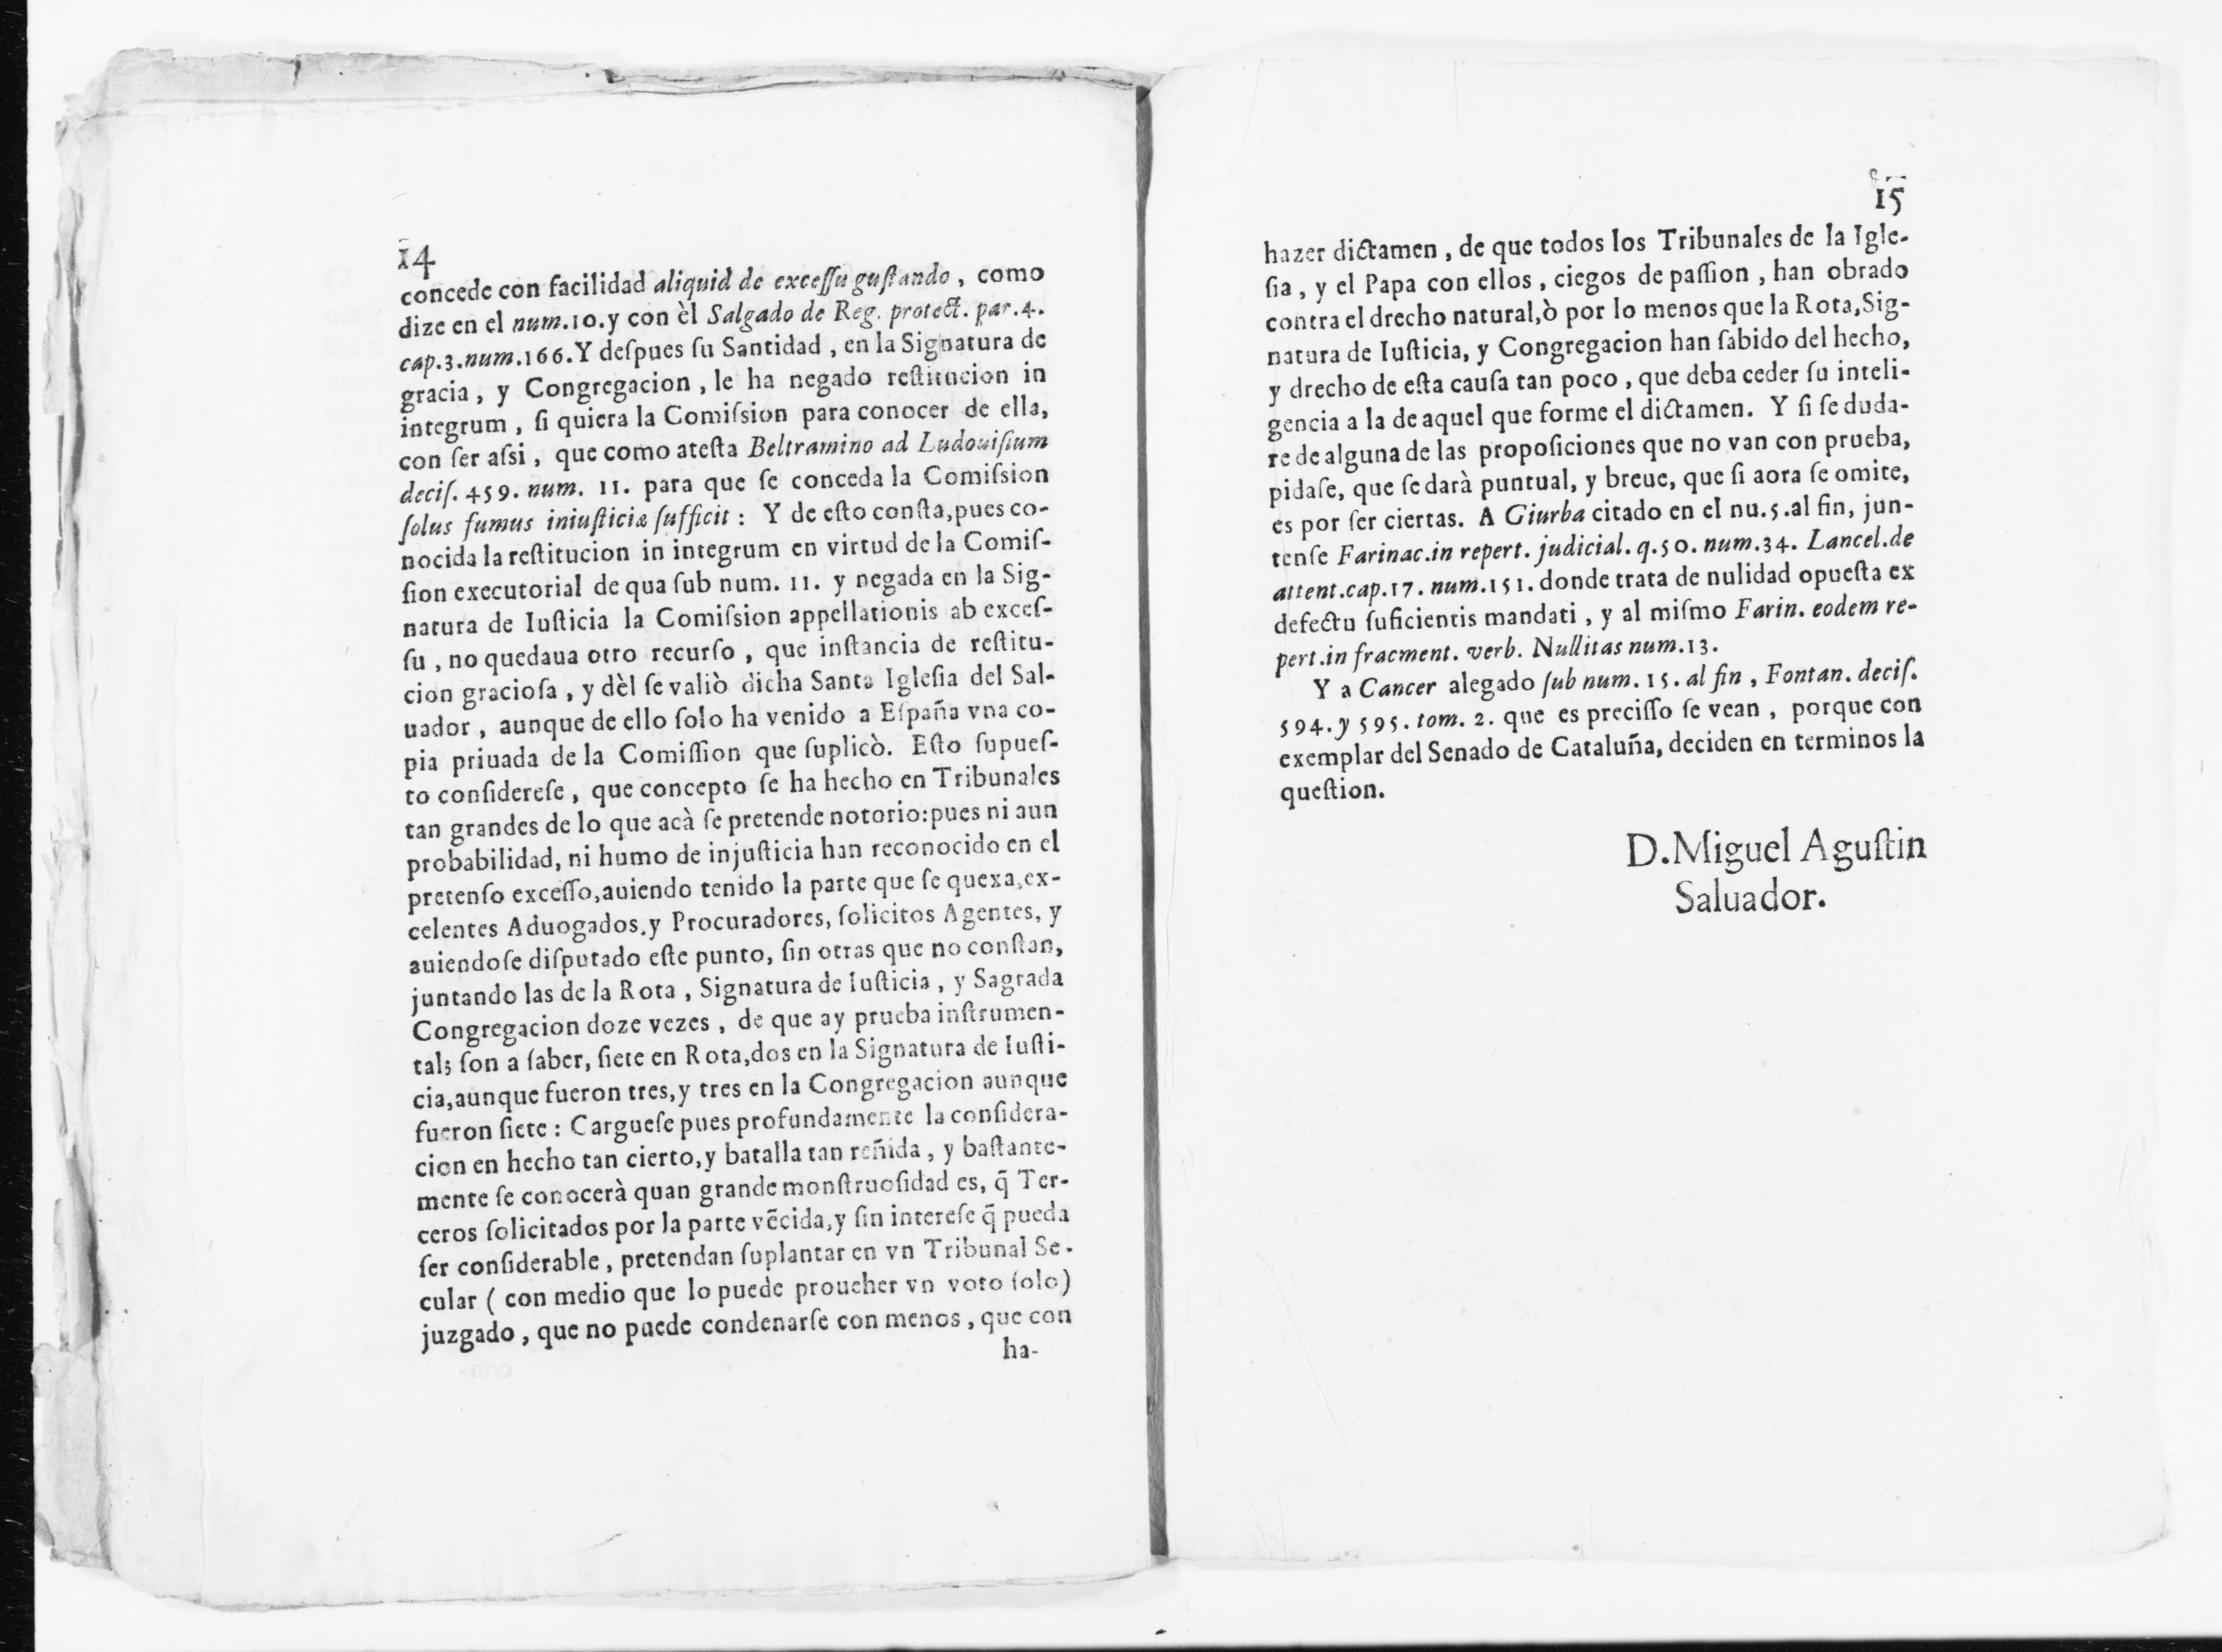 14
concede con facilidad aliquid de excessu gustando, como
dize en el num.10.y con èl Salgado de Reg. protect. par.4.
cap.3.num.166.Y deſpues ſu Santidad, en la Signatura de
gracia, y Congregacion, le ha negado reſtitucion in
integrum, ſi quiera la Comiſsion para conocer de ella,
con ſer aſsi, que como ateſta Beltramino ad Ludouiſium
deciſ. 459. num. 11. para que ſe conceda la Comiſsion
ſolus fumus iniuſticiæ ſufficit: Y de eſto conſta,pues co-
nocida la reſtitucion in integrum en virtud de la Comiſ-
ſion executorial de qua ſub num. 11. y negada en la Sig-
natura de Iuſticia la Comiſsion appellationis ab exceſ-
ſu, no quedaua otro recurſo, que inſtancia de reſtitu-
cion gracioſa, y dèl ſe valiò dicha Santa Igleſia del Sal-
uador, aunque de ello ſolo ha venido a Eſpaña vna co-
pia priuada de la Comiſſion que ſuplicò. Eſto ſupueſ-
to conſidereſe, que concepto ſe ha hecho en Tribunales
tan grandes de lo que acà ſe pretende notorio:pues ni aun
probabilidad, ni humo de injuſticia han reconocido en el
pretenſo exceſſo,auiendo tenido la parte que ſe quexa,ex-
celentes Aduogados,y Procuradores, ſolicitos Agentes, y
auiendoſe diſputado eſte punto, ſin otras que no conſtan,
juntando las de la Rota, Signatura de Iuſticia, y Sagrada
Congregacion doze vezes, de que ay prueba inſtrumen-
tal; ſon a ſaber, ſiete en Rota,dos en la Signatura de Iuſti-
cia,aunque fueron tres,y tres en la Congregacion aunque
fueron ſiete: Cargueſe pues profundamente la conſidera-
cion en hecho tan cierto,y batalla tan reñida, y baſtante-
mente ſe conocerà quan grande monſtruoſidad es, q̃ Ter-
ceros ſolicitados por la parte vẽcida,y ſin intereſe q̃ pueda
ſer conſiderable, pretendan ſuplantar en vn Tribunal Se-
cular ( con medio que lo puede proueher vn voto ſolo)
juzgado, que no puede condenarſe con menos, que con
ha-
15
hazer dictamen, de que todos los Tribunales de la Igle-
ſia, y el Papa con ellos, ciegos de paſſion, han obrado
contra el drecho natural,ò por lo menos que la Rota,Sig-
natura de Iuſticia, y Congregacion han ſabido del hecho,
y drecho de eſta cauſa tan poco, que deba ceder ſu inteli-
gencia a la de aquel que forme el dictamen. Y ſi ſe duda-
re de alguna de las propoſiciones que no van con prueba,
pidaſe, que ſe darà puntual, y breue, que ſi aora ſe omite,
es por ſer ciertas. A Giurba citado en el nu.5.al fin, jun-
tenſe Farinac.in repert. judicial. q.50. num.34. Lancel.de
attent.cap.17. num.151.donde trata de nulidad opueſta ex
defectu ſuficientis mandati, y al miſmo Farin. eodem re-
pert.in fracment. verb. Nullitas num.13.
Y a Cancer alegado ſub num. 15. al fin, Fontan. deciſ.
594. y 595. tom. 2. que es preciſſo ſe vean, porque con
exemplar del Senado de Cataluña, deciden en terminos la
queſtion.
D.Miguel Aguſtin
Saluador.